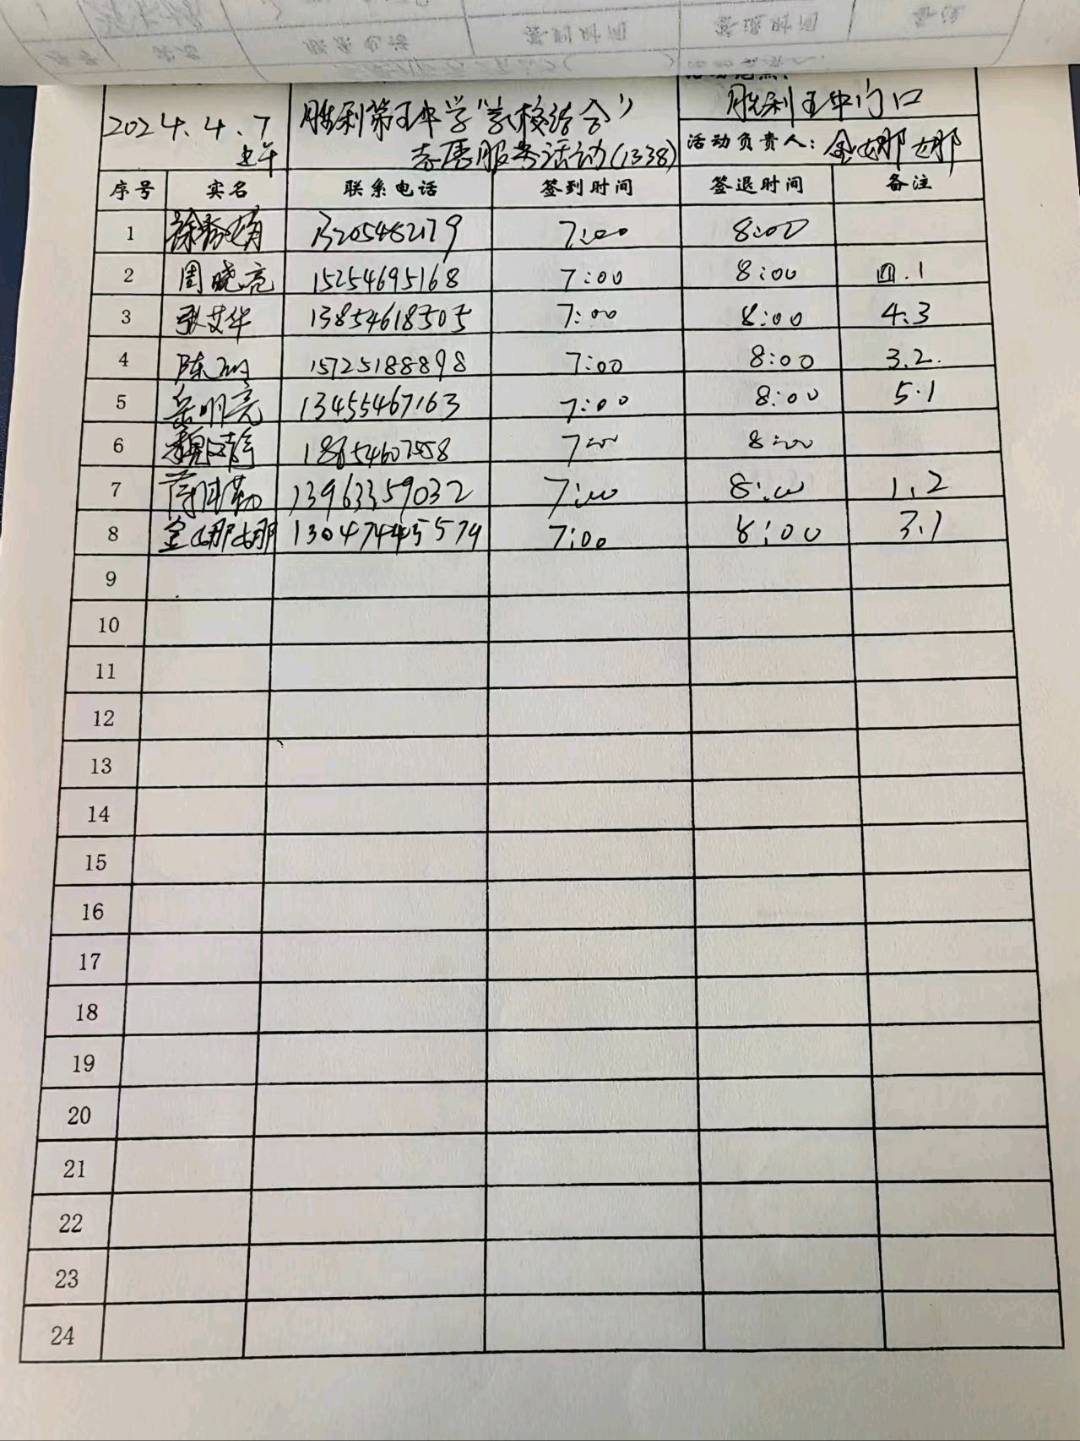 2024.4.7
上午
胜利第五中学"家校结合"
志愿服务活动(1338)
胜利五中门口
活动负责人: 金娜娜
序号 实名 联系电话 签到时间 签退时间 备注
1 13205482179 7:00 8:00
2 周晓亮 15254695168 7:00 8:00 四.1
3 张艾华 13854618505 7:00 8:00 4.3
4 陈 15725188898 7:00 8:00 3.2.
5 岳明亮 13455467163 7:00 8:00 5.1
6 7:00 8:00
7 13963359032 7:00 8:00 1.2
8 金娜娜 13047445579 7:00 8:00 3.1
9
10
11
12
13
14
15
16
17
18
19
20
21
22
23
24